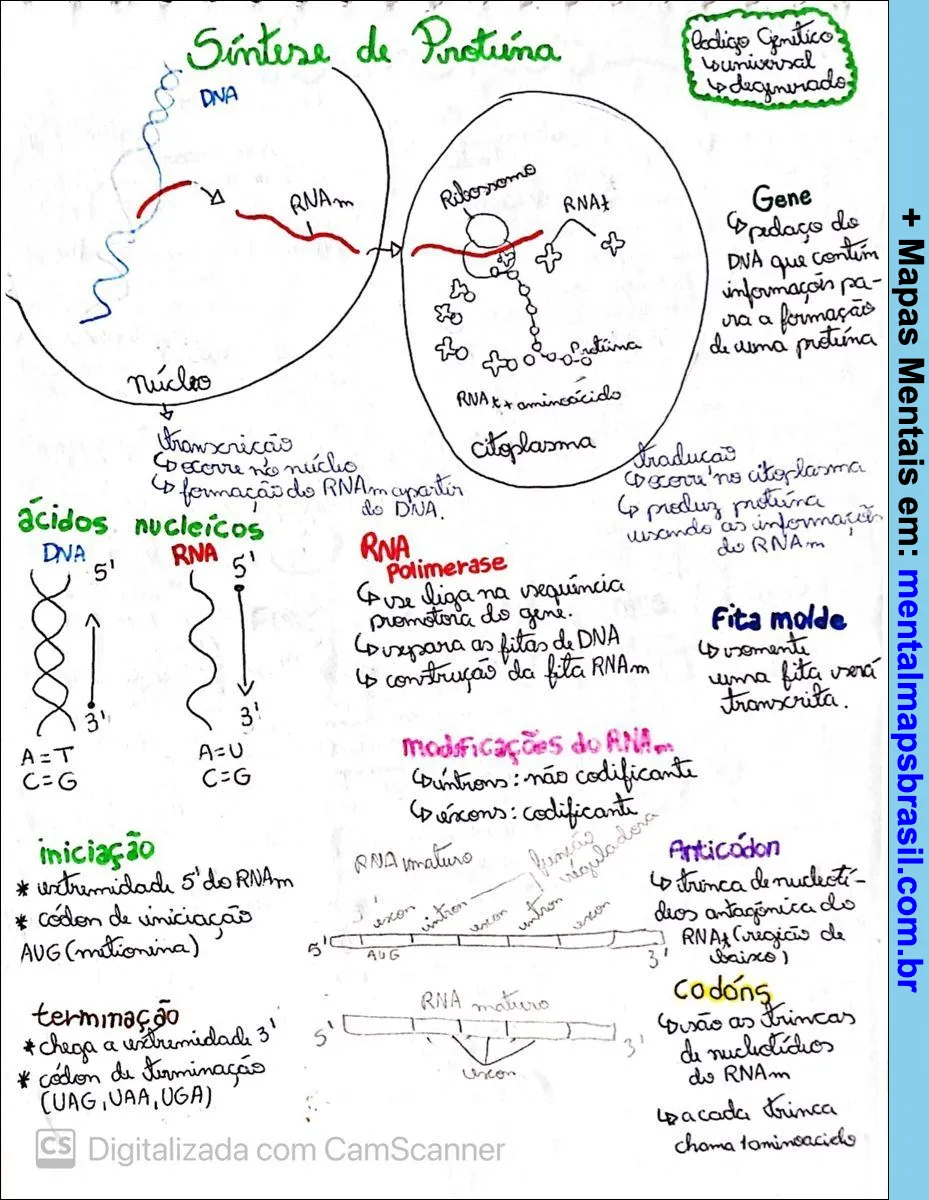 Síntese de Proteína
Código Genético
↳ universal
↳ degenerado
DNA
RNAm
Ribossomo
RNAt
Proteína
RNAt + aminoácido
citoplasma
núcleo
Gene
↳ pedaço do
DNA que contém
informações pa-
ra a formação
de uma proteína
transcrição
↳ ocorre no núcleo
↳ formação do RNAm apartir
do DNA.
tradução
↳ ocorre no citoplasma
↳ produz proteína
usando as informações
do RNAm
ácidos nucleícos
DNA
5'
3'
A=T
C=G
RNA
5'
3'
A=U
C=G
RNA
Polimerase
↳ se liga na sequência
promotora do gene.
↳ separa as fitas de DNA
↳ construção da fita RNAm
Fita molde
↳ somente
uma fita será
transcrita.
modificações do RNAm
↳ íntrons: não codificante
↳ éxons: codificante
iniciação
* extremidade 5' do RNAm
* códon de iniciação
AUG (metionina)
RNA imaturo
função
reguladora
exon
intron
exon
intron
exon
5'
AUG
3'
Anticódon
↳ trinca de nucleotí-
deos antagônica do
RNAt (região de
baixo)
terminação
* chega a extremidade 3'
* códon de terminação
(UAG, UAA, UGA)
RNA maturo
5'
3'
exon
codóns
↳ são as trincas
de nucleotídios
do RNAm
↳ a cada trinca
chama 1 aminoacido
CS Digitalizada com CamScanner
+ Mapas Mentais em: mentalmapsbrasil.com.br